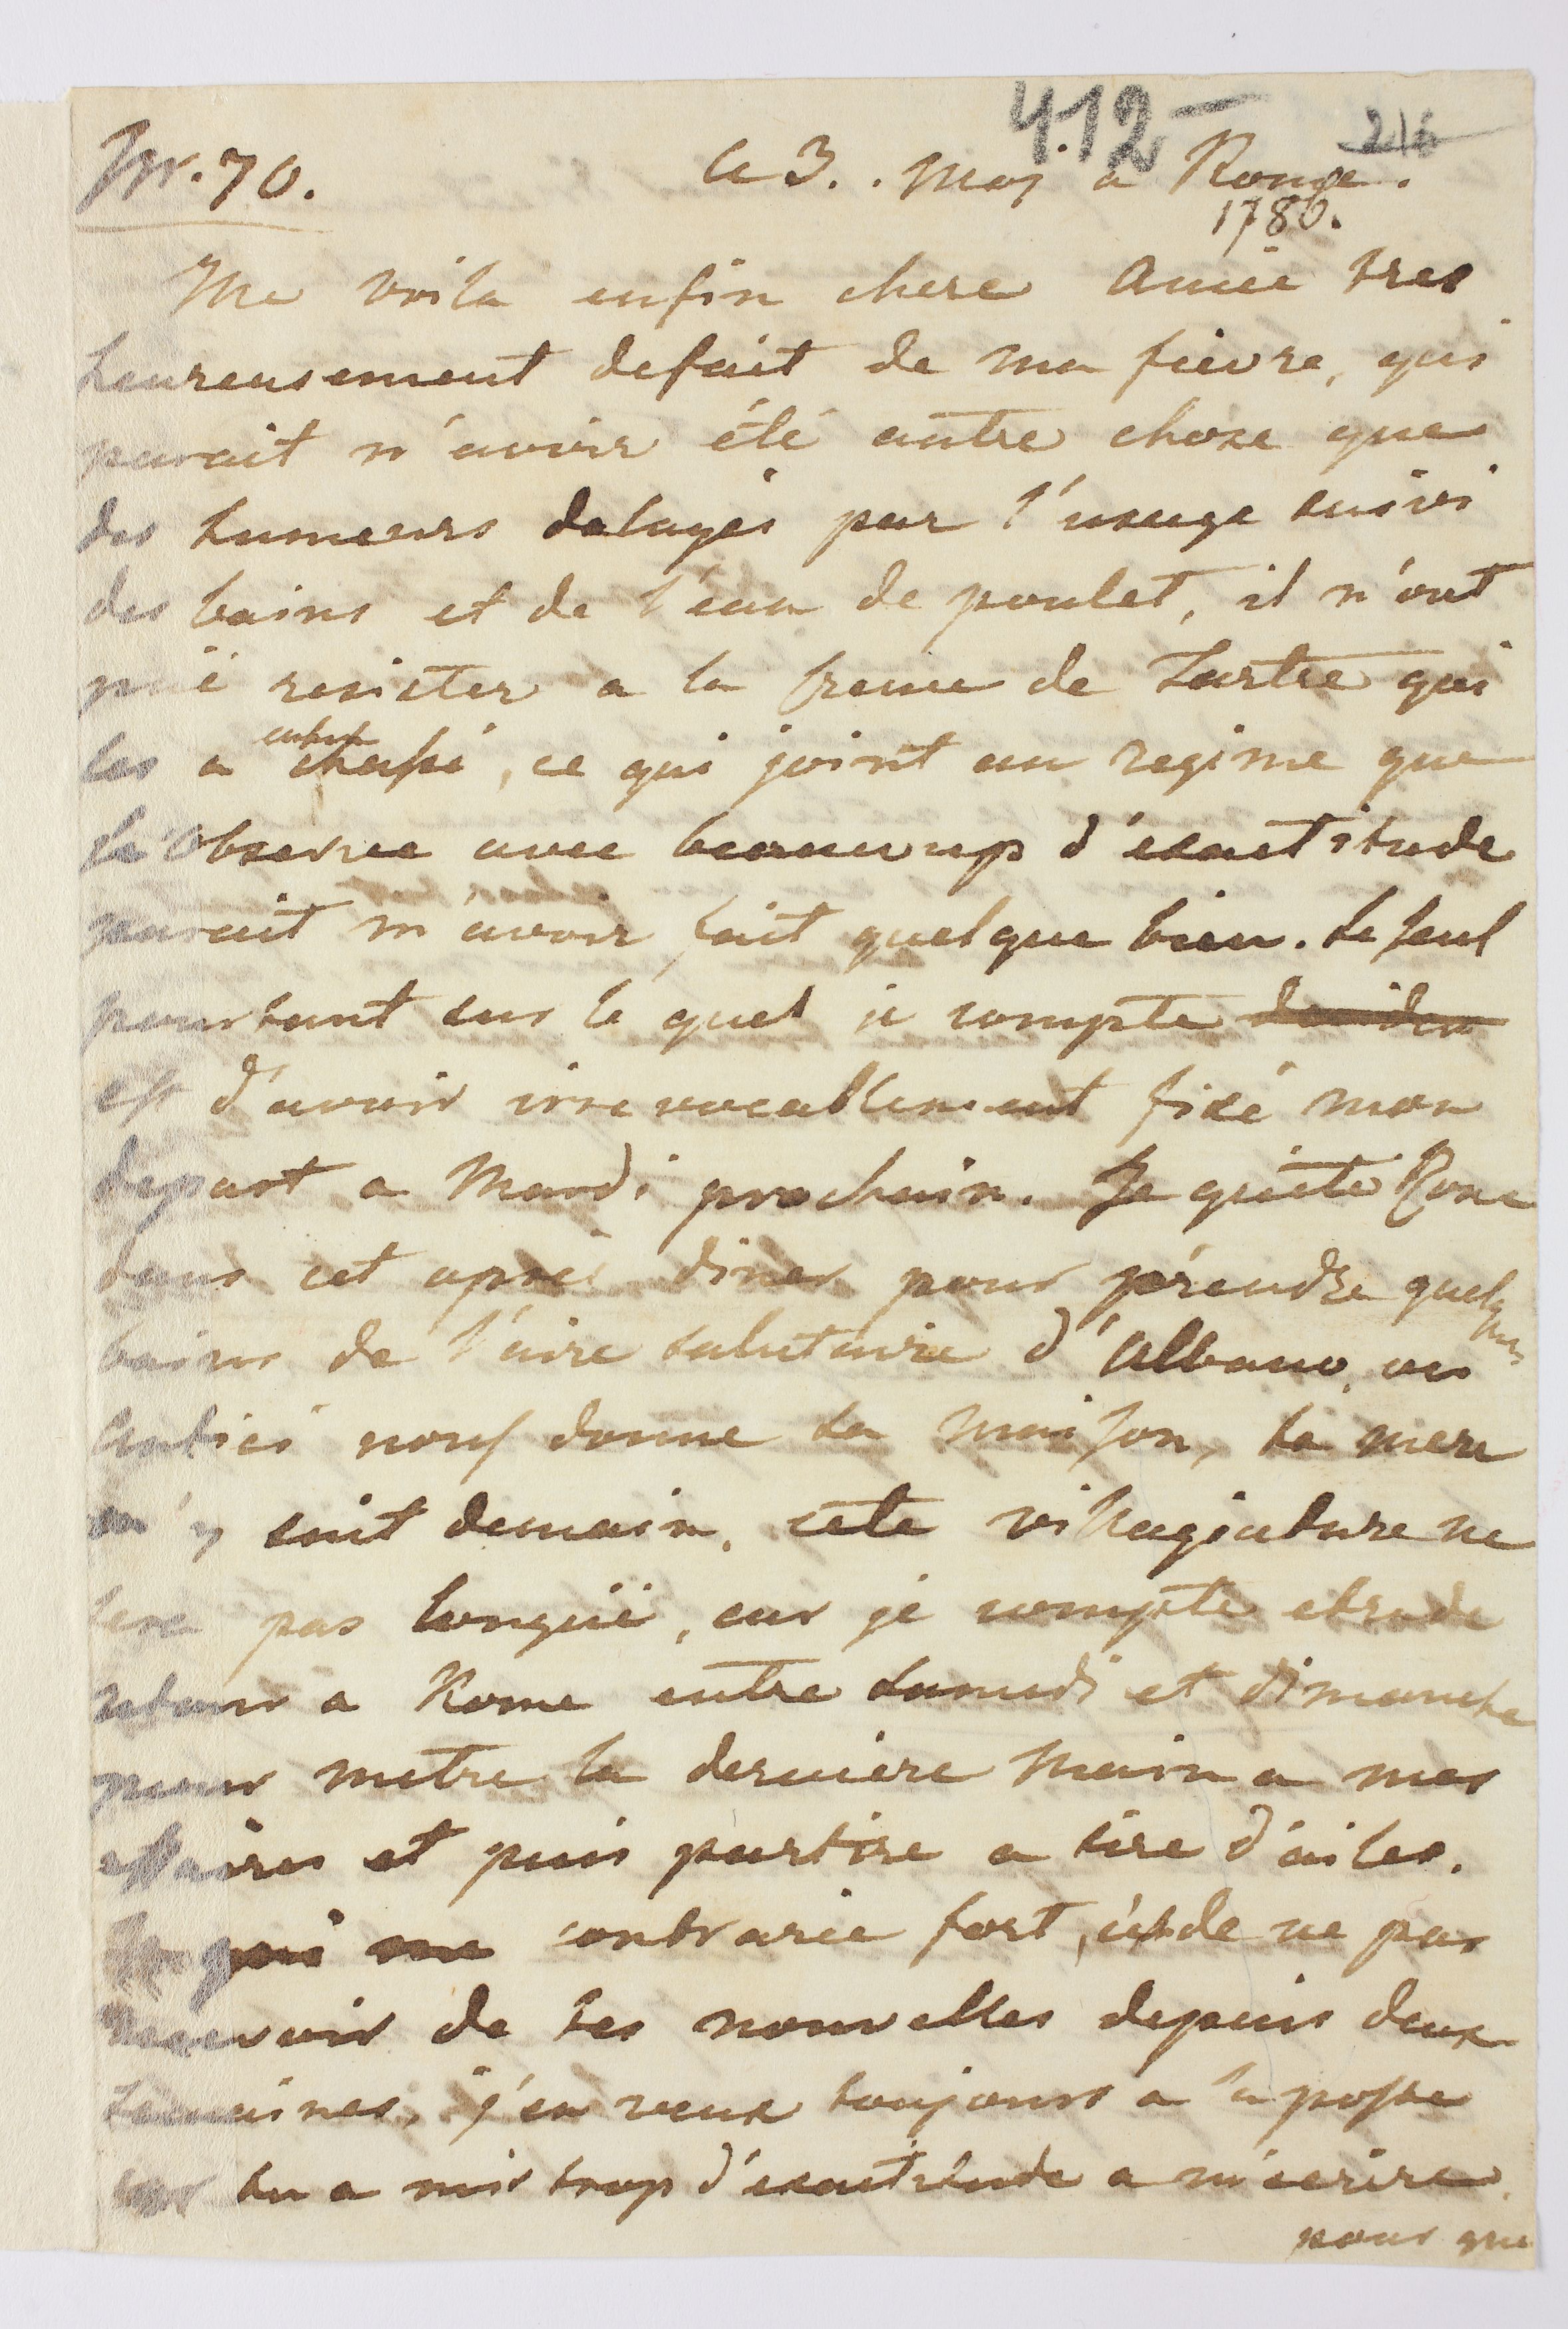 412 —
216
Nr. 70.
Ce 3. May a Rome.
1780.
Me voila enfin chere Amie tres
heureusement defait de ma fievre, qui
parait n'avoir été autre chose que
des humeurs delayés par l'usage suivi
des bains et de l'eau de poulet, il n'ont
pue resister a la creme de Tartre qui
les a enfin chassé, ce qui joint au regime que
j'observe avec beaucoup d'exactitude
parait m'avoir fait quelque bien. Le seul
pourtant sur le quel je compte
est d'avoir irrevocablement fixé mon
depart a Mardi prochain. Je quitte Rome
dans cet aprés diner pour prendre quelques
bains de l'aire salutaire d'Albano, ou
Antici nous donne sa maison, sa mere
m'y suit demain, cete villagiature ne
sera pas longuë, car je compte etre de
retour a Rome entre samedi et dimanche
pour metre la derniere main a mes
affaires et puis partire a tire d'ailes.
Ce qui me contrarie fort, c'est de ne pas
recevoir de tes nouvelles depuis deux
semaines, j'en veux toujours a la poste
car tu a mis trop d'exactitude a m'ecrire,
pour que